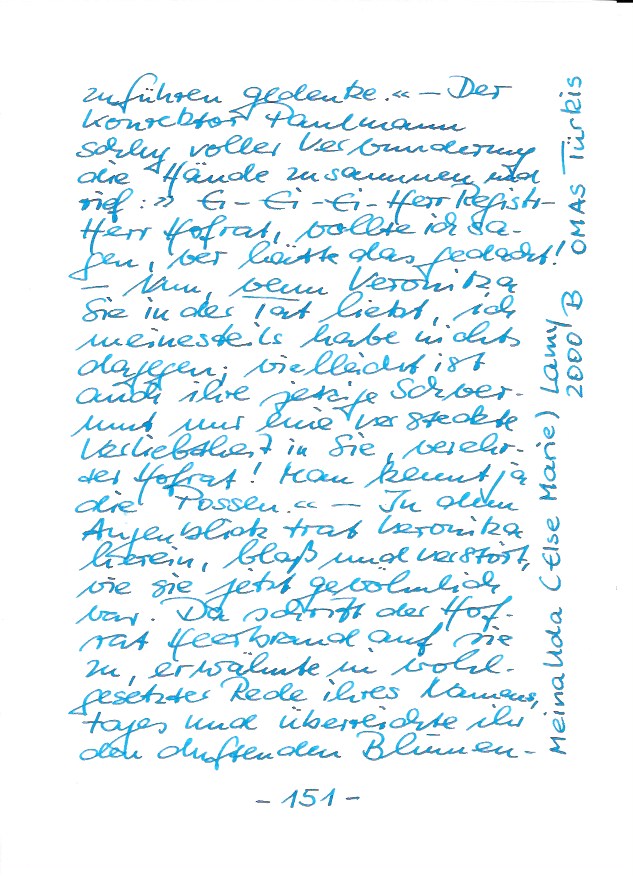 zuführen gedenke.« – Der
Konrektor Paulmann
schlug voller Verwunderung
die Hände zusammen und
rief: » Ei – Ei – Ei – Herr Registr–
Herr Hofrat, wollte ich sa-
gen, wer hätte das gedacht!
– Nun, wenn Veronika
Sie in der Tat liebt, ich
meinesteils habe nichts
dagegen; vielleicht ist
auch ihre jetzige Schwer-
mut nur eine versteckte
Verliebtheit in Sie, verehr-
ter Hofrat! Man kennt ja
die Possen.« – In dem
Augenblick trat Veronika
herein, blaß und verstört,
wie sie jetzt gewöhnlich
war. Da schritt der Hof-
rat Heerbrand auf sie
zu, erwähnte in wohl-
gesetzter Rede ihres Namens-
tages und überreichte ihr
den duftenden Blumen-
- 151 -
Meina Uda (Else Marie) Lamy
2000 B OMAs Türkis